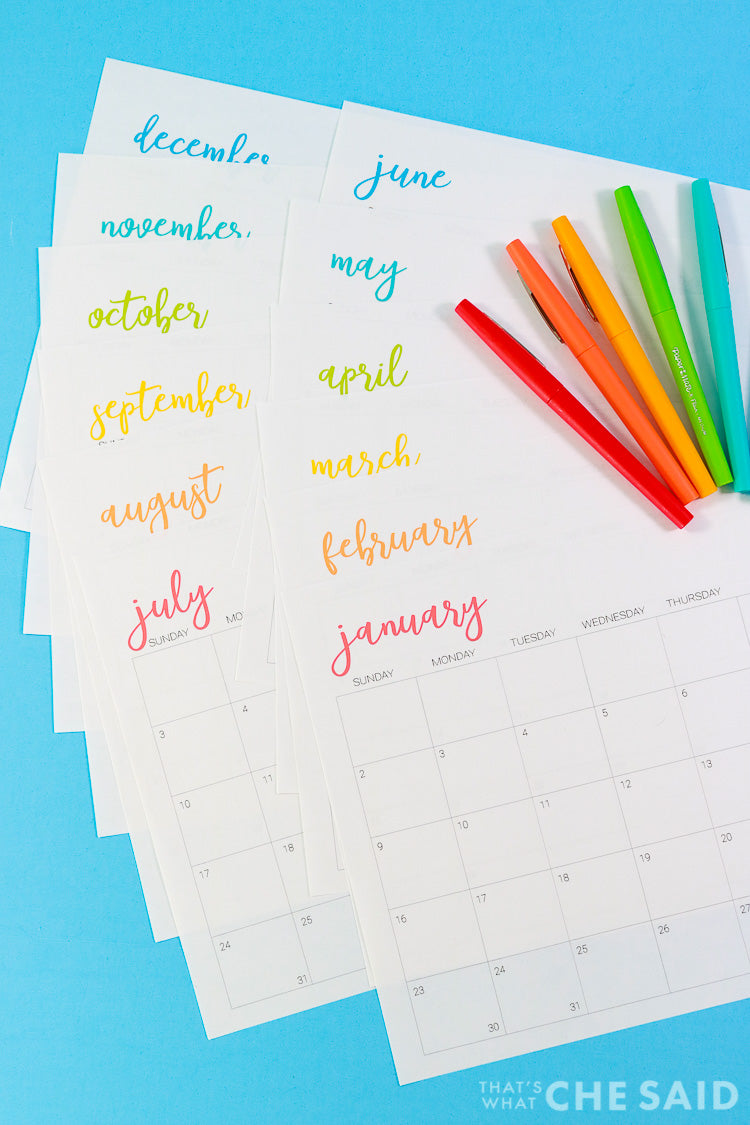 december
november
october
september
august
july
SUNDAY
3 4
10 11
17 18
24 25
31
june
may
april
march
february
january
SUNDAY MONDAY TUESDAY WEDNESDAY THURSDAY
2 3 4 5 6
9 10 11 12 13
16 17 18 19 20
23 24 25 26 27
30 31
Paper Mate
THAT'S WHAT CHE SAID